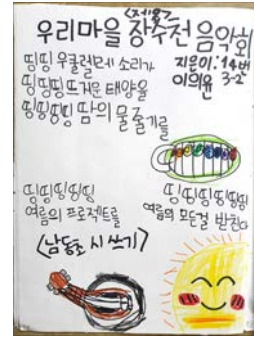 <제목>
우리마을 장수천 음악회
지은이:14번
이의윤 3-2
띵띵 우쿨렐레 소리가
띵띵띵 뜨거운 태양을
띵띵띵띵 땀의 물줄기를
띵띵띵띵띵
여름의 프로젝트를
띵띵띵띵띵띵
여름의 모든걸 반친다
<남동초 시 쓰기>